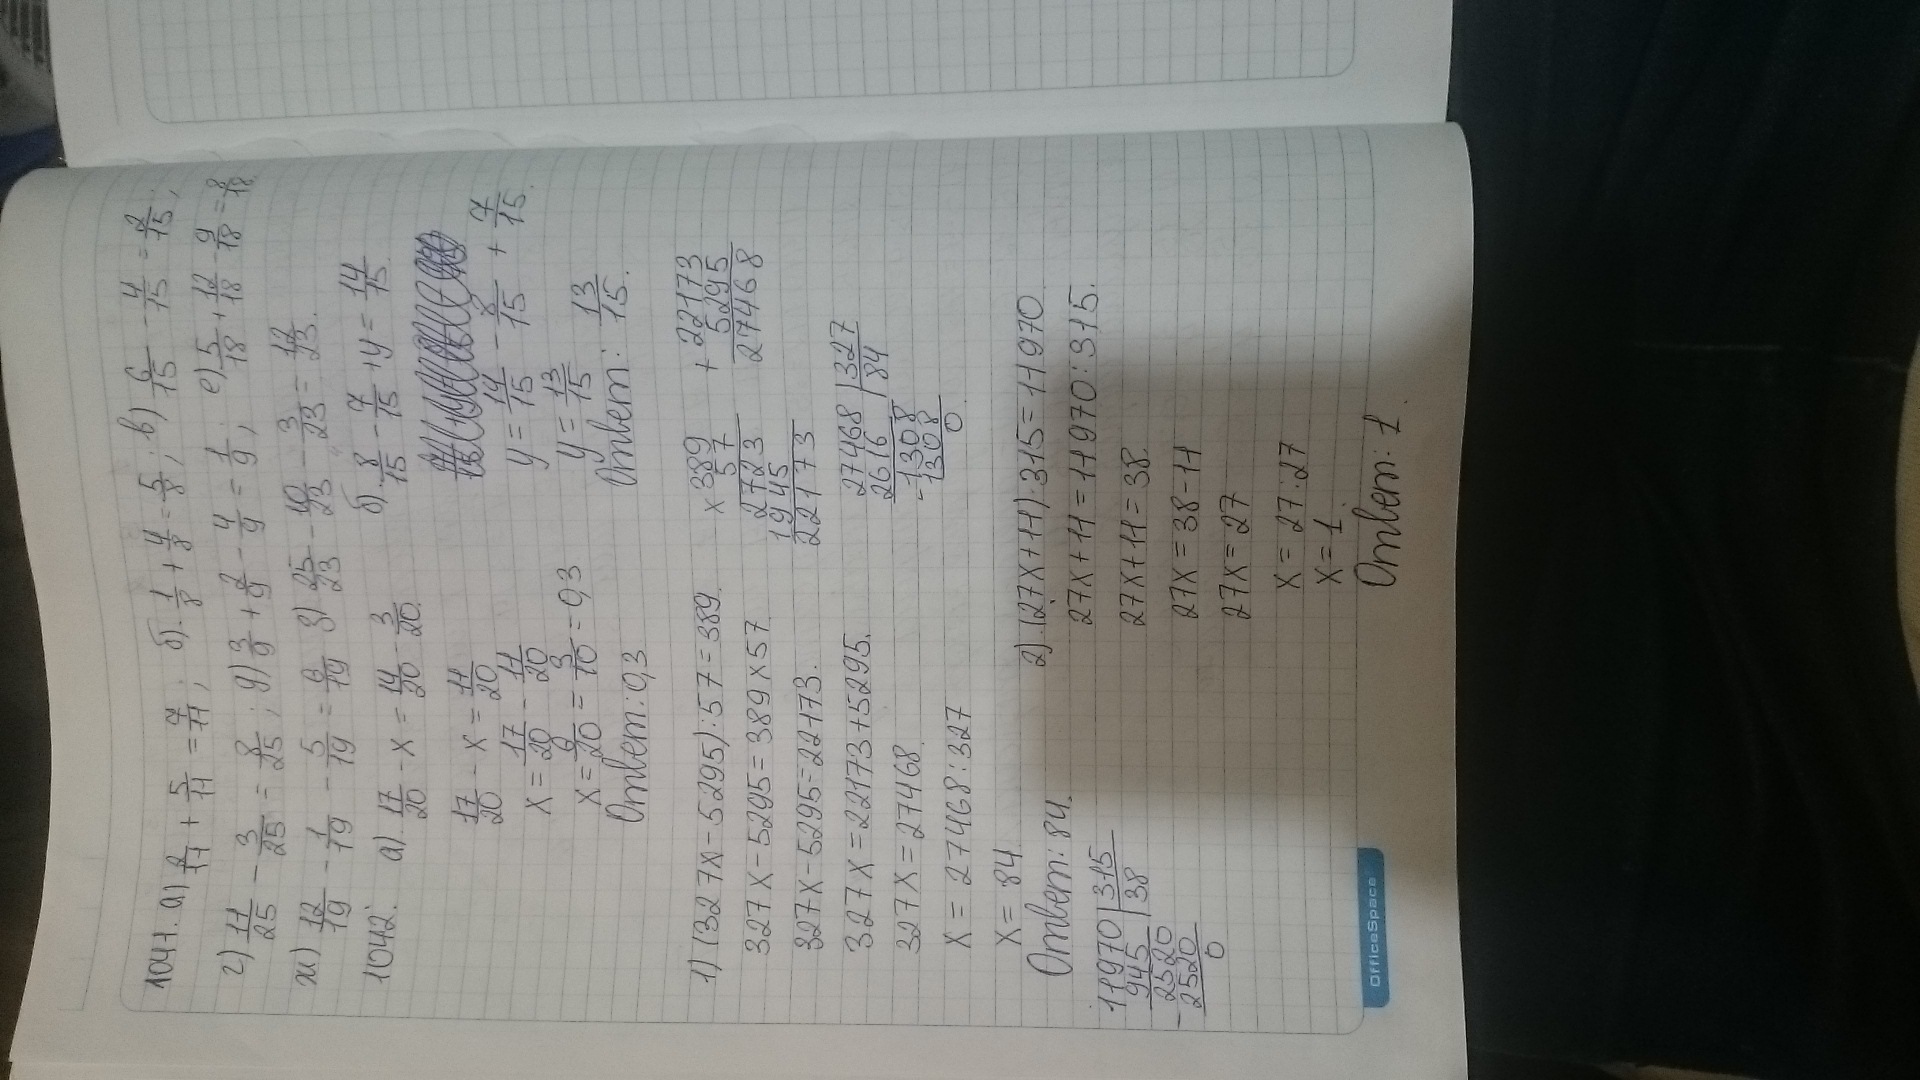 1041. а) 2/11 + 5/11 = 7/11; б) 1/8 + 4/8 = 5/8; в) 6/15 - 4/15 = 2/15;
г) 11/25 - 3/25 = 8/25; д) 3/9 + 2/9 - 4/9 = 1/9; е) 5/18 + 12/18 - 9/18 = 8/18
ж) 12/19 - 1/19 - 5/19 = 6/19 з) 25/23 - 10/23 - 3/23 = 12/23.
1042. а) 17/20 - x = 14/20 - 3/20. б) 8/15 - 7/15 + y = 14/15.
17/20 - x = 11/20
x = 17/20 - 11/20
x = 6/20 = 3/10 = 0,3
Ответ: 0,3
y = 14/15 - 8/15 + 7/15.
y = 13/15
Ответ: 13/15.
1) (327x - 5295) : 57 = 389.
327x - 5295 = 389 x 57
327x - 5295 = 22173.
327x = 22173 + 5295.
327x = 27468.
x = 27468 : 327
x = 84
Ответ: 84.
x 389
57
2723
1945
22173
+ 22173
5295
27468
27468 | 327
2616 | 84
- 1308
1308
0
11970 | 315
945 | 38
- 2520
2520
0
2). (27x + 11) · 315 = 11970
27x + 11 = 11970 : 315.
27x + 11 = 38.
27x = 38 - 11
27x = 27
x = 27 : 27
x = 1
Ответ: 1.
OfficeSpace